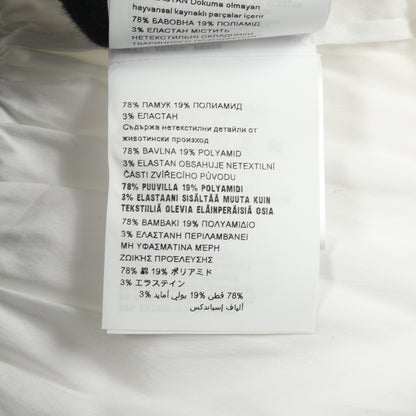 ELASTAN Dokuma olmayan
hayvansal kaynaklı parçalar içerir
78% БАВОВНА 19% ПОЛІАМІД
3% ЕЛАСТАН МІСТИТЬ
НЕТЕКСТИЛЬНІ СКЛАДНИКИ
ТВАРИННОГО
78% ПАМУК 19% ПОЛИАМИД
3% ЕЛАСТАН
Съдържа нетекстилни детайли от
животински произход
78% BAVLNA 19% POLYAMID
3% ELASTAN OBSAHUJE NETEXTILNÍ
ČÁSTI ZVÍŘECÍHO PŮVODU
78% PUUVILLA 19% POLYAMIDI
3% ELASTAANI SISÄLTÄÄ MUUTA KUIN
TEKSTIILIÄ OLEVIA ELÄINPERÄISIÄ OSIA
78% ΒΑΜΒΑΚΙ 19% ΠΟΛΥΑΜΙΔΙΟ
3% ΕΛΑΣΤΑΝΗ ΠΕΡΙΛΑΜΒΑΝΕΙ
ΜΗ ΥΦΑΣΜΑΤΙΝΑ ΜΕΡΗ
ΖΩΙΚΗΣ ΠΡΟΕΛΕΥΣΗΣ
78% 綿 19% ポリアミド
3% エラステイン
78% قطن 19% بولي أمايد 3%
ألياف إسباندكس